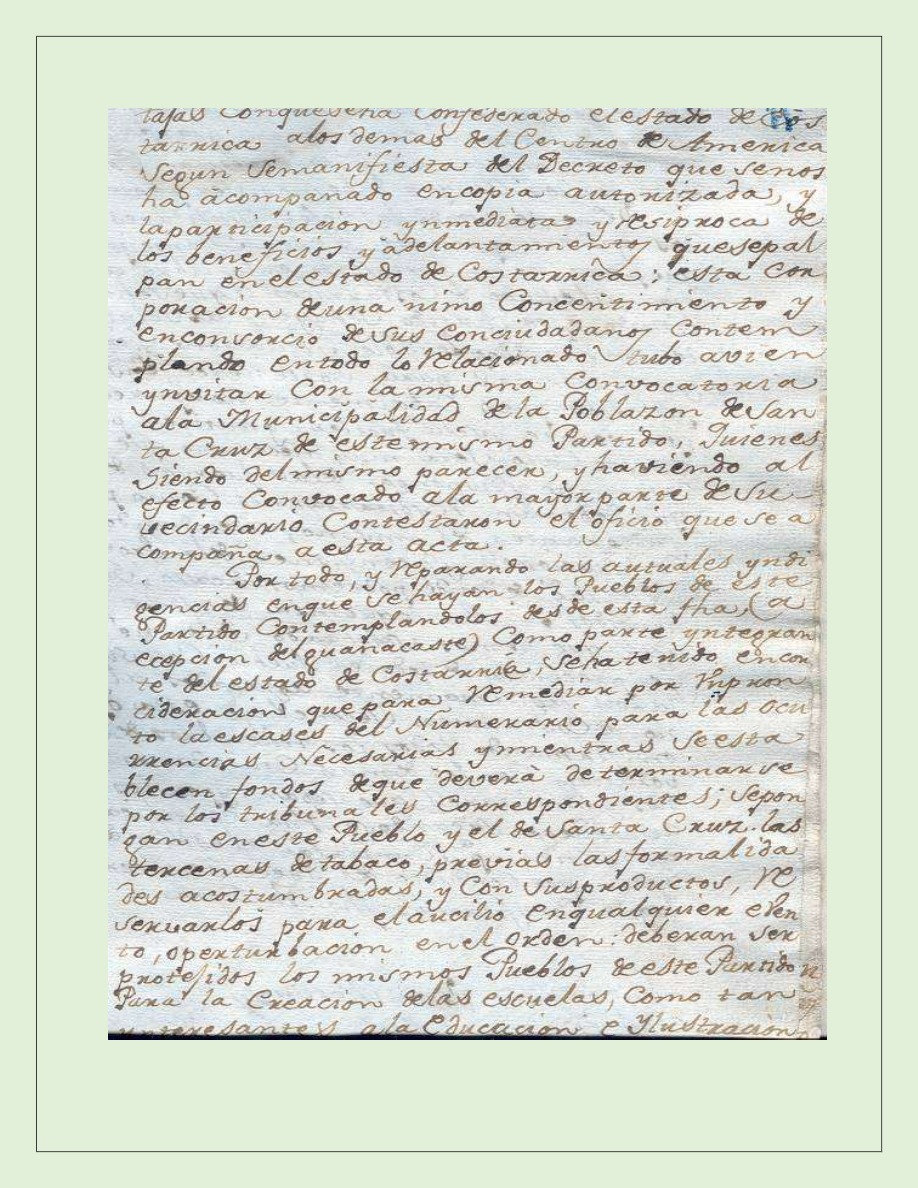 tajas Conqueseha Confederado elestado de Cos
tarrica alos demas del Centro de America
Segun Semanifiesta del Decreto que senos
ha acompañado encopia autorizada, y
laparticipacion ynmediata y Resiproca de
los beneficios y adelantamientos quesepal
pan enelestado de Costarrica; esta Cor
poracion deuna nimo Concentimiento y
enconsorcio desus Conciudadanos Contem
plando entodo lo Relacionado tubo avien
ynvitar Con lamisma Convocatoria
ala Municipalidad de la Poblazon deSan
ta Cruz de estemismo Partido, Quienes
Siendo delmismo parecer, y haviendo al
efecto Convocado ala mayor parte deSu
vecindario Contestaron el oficio que se a
compaña a esta acta.
Por todo, y Reparando las autuales yndi
gencias enque sehayan los Pueblos de este
Partido Contemplandolos desde esta fha (a
ecepcion delguanacaste) Como parte yntegran
te del estado de Costarrica, Sehatenido encon
cideracion que para Remediar por Vnpron
to laescases del Numerario para las ocu
rrencias Necesarias ymientras Seesta
blecen fondos deque deverà determinarse
por los tribunales Correspondientes; Sepon
gan eneste Pueblo y el de Santa Cruz las
tercenas de tabaco, previas lasformalida
des acostumbradas, y Con Susproductos, Re
servarlos para elaucilio Enqualquier even
to, operturbacion enel orden: deberan ser
protejidos los mismos Pueblos deeste Partido
Para la Creacion delas escuelas, Como tan
ynteresantes ala Educacion e Ylustracion